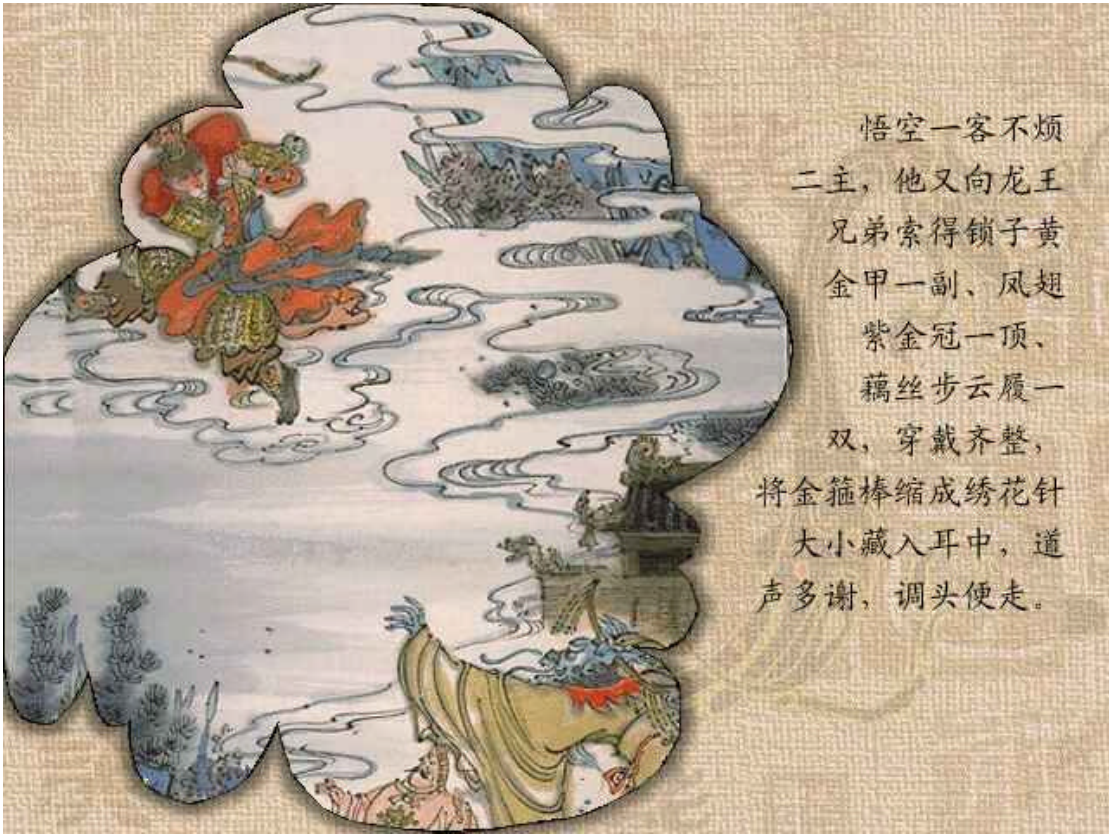 悟空一客不烦
二主，他又向龙王
兄弟索得锁子黄
金甲一副、凤翅
紫金冠一顶、
藕丝步云履一
双，穿戴齐整，
将金箍棒缩成绣花针
大小藏入耳中，道
声多谢，调头便走。